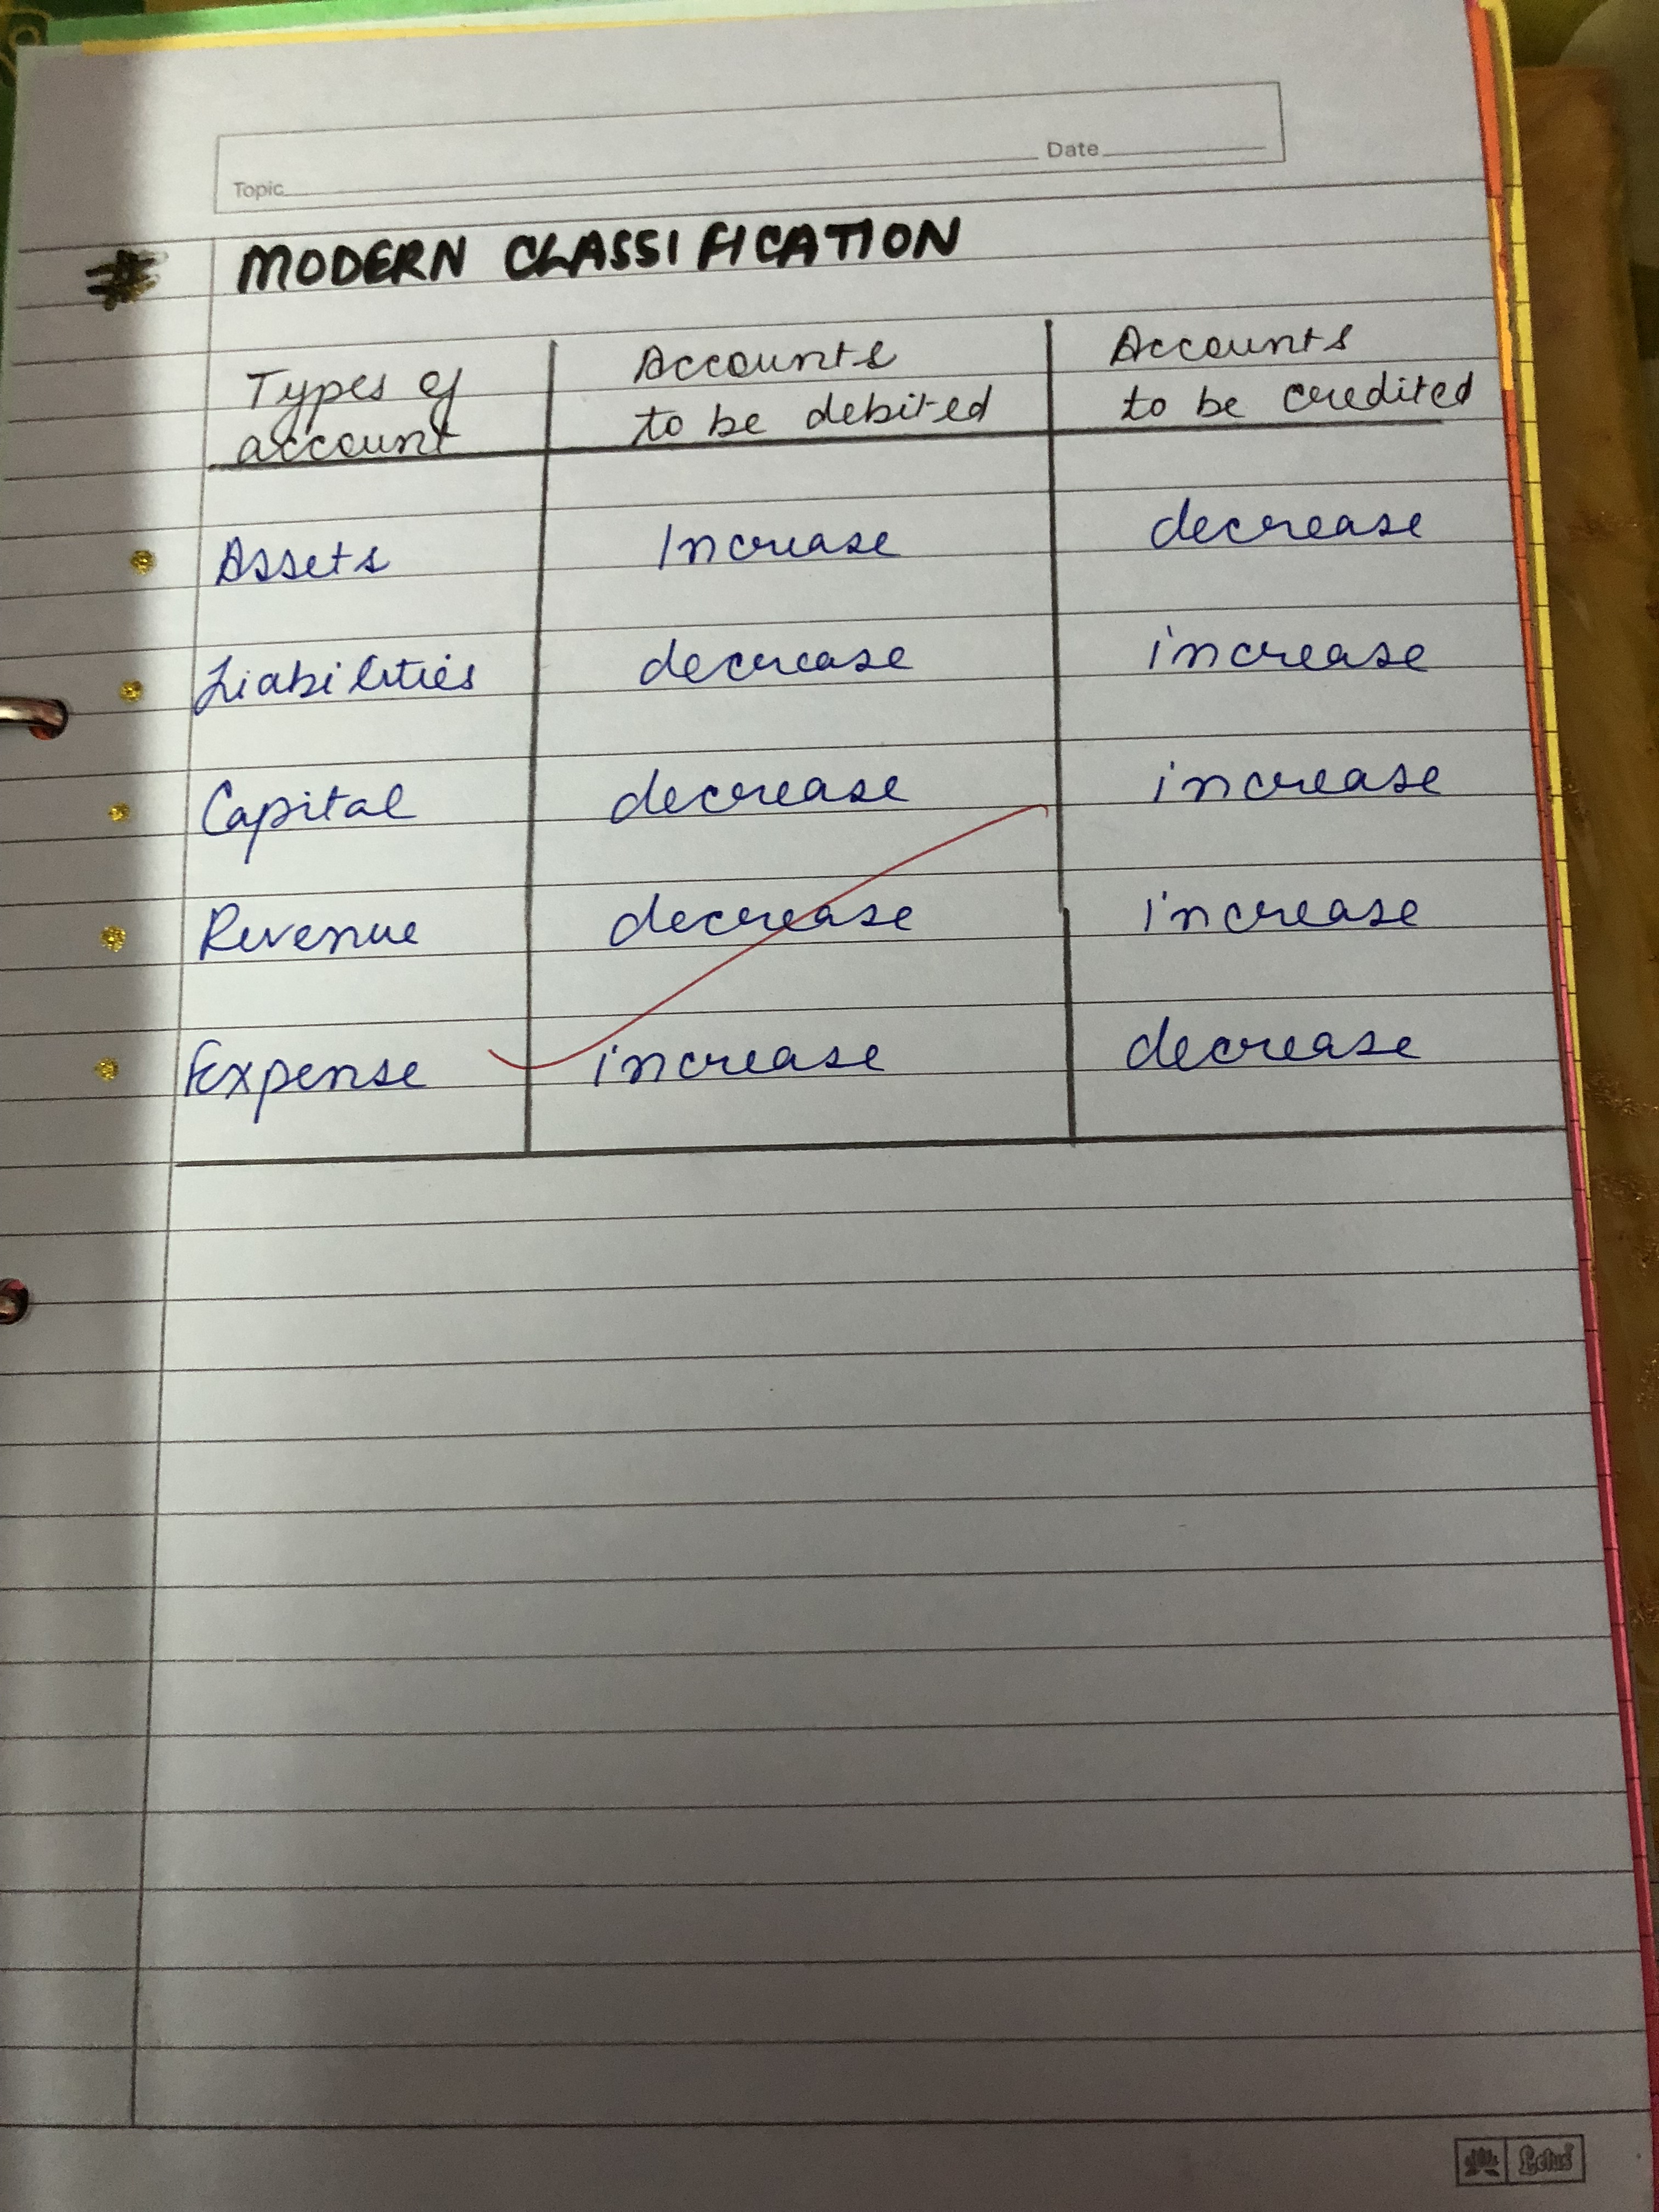 Topic Date
# MODERN CLASSIFICATION
Types of account Accounts to be debited Accounts to be credited
Assets Increase decrease
Liabilities decrease increase
Capital decrease increase
Revenue decrease increase
Expense increase decrease
Lotus